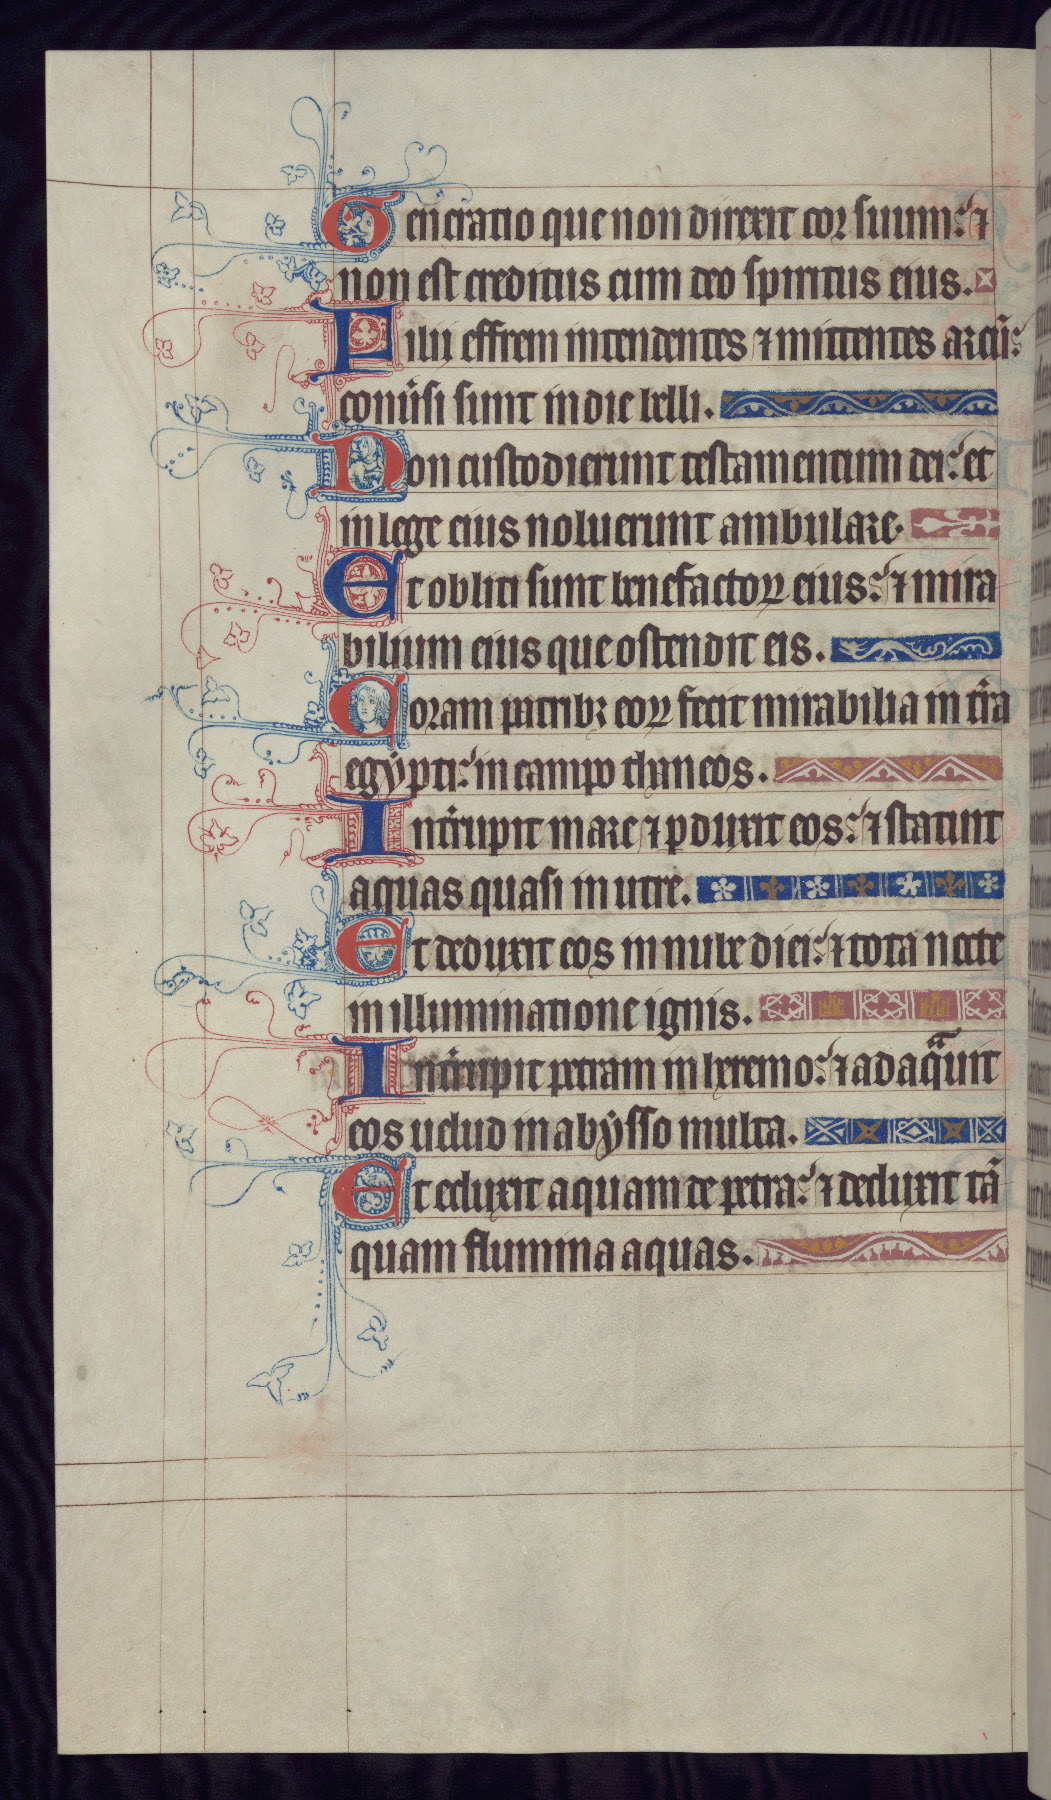 Generatio que non direxit cor suum: ⁊
non est creditus cum deo spiritus eius.
Filii effrem intendentes ⁊ mittentes arcū:
conu͛si sunt in die belli.
Non custodierunt testamentum dei: et
in lege eius noluerunt ambulare.
Et obliti sunt benefactoꝝ eius: ⁊ mira
bilium eius que ostendit eis.
Coram patribꝫ eoꝝ fecit mirabilia in t͛ra
egẏpti: in campo thaneos.
Int͛rupit mare ⁊ ꝑduxit eos: ⁊ statuit
aquas quasi in utre.
Et deduxit eos in nube diei: ⁊ tota nocte
in illuminatione ignis.
Int͛rupit petram in heremo: ⁊ adaqᷓuit
eos uelud in abẏsso multa.
Et eduxit aquam de petra: ⁊ deduxit tā
quam flumina aquas.